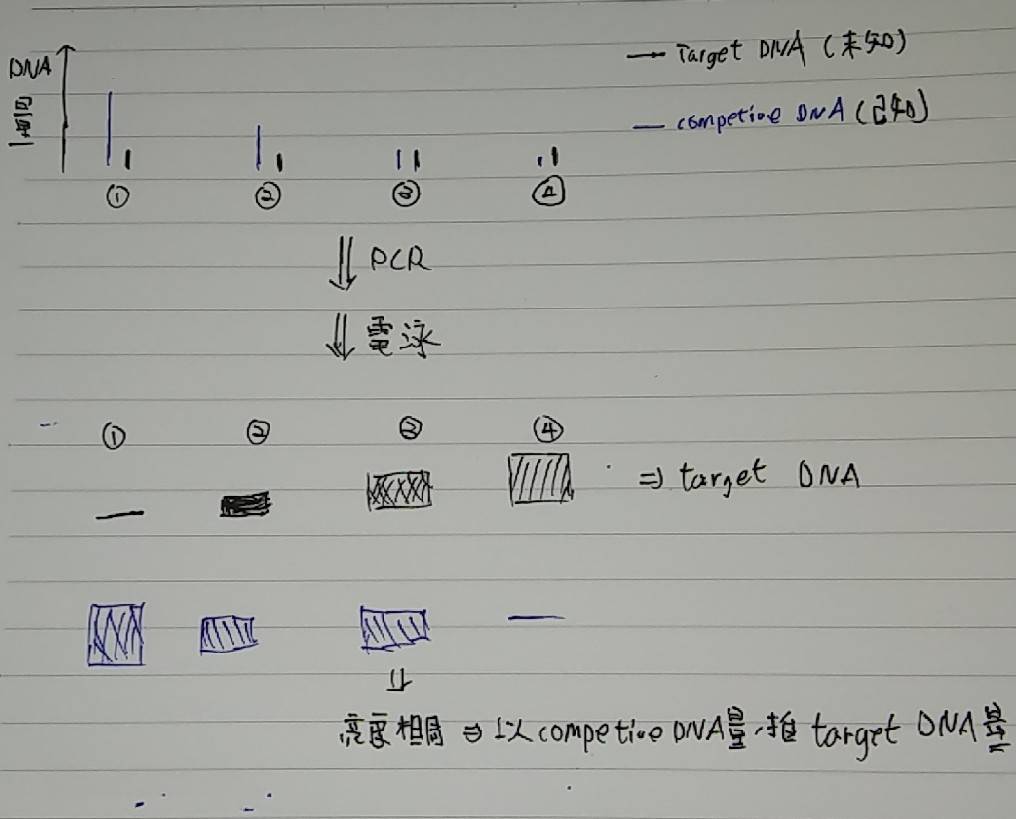 DNA
個數
— Target DNA (未知)
— competive DNA (已知)
① ② ③ ④
⇓ PCR
⇓ 電泳
① ② ③ ④
⇒ target DNA
⇓
亮度相同 ⇒ 以competive DNA量推 target DNA量